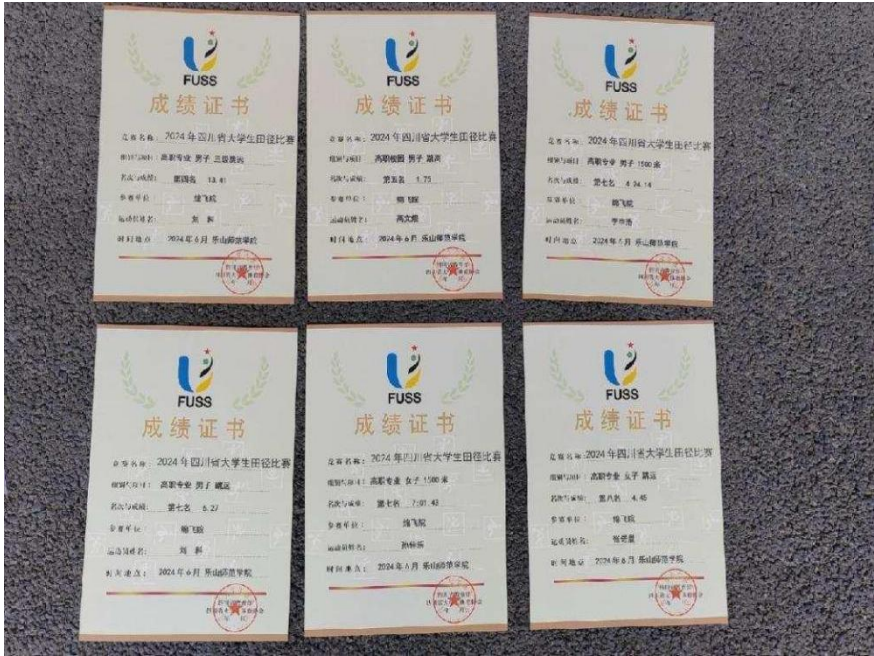 FUSS
成绩证书
竞赛名称: 2024年四川省大学生田径比赛
组别与项目: 高职专业 男子 三级跳远
名次与成绩: 第四名 13.41
参赛单位: 绵飞院
运动员姓名: 刘 科
时间地点: 2024年6月 乐山师范学院
FUSS
成绩证书
竞赛名称: 2024年四川省大学生田径比赛
组别与项目: 高职校园 男子 跳高
名次与成绩: 第五名 1.75
参赛单位: 绵飞院
运动员姓名: 高文
时间地点: 2024年6月 乐山师范学院
FUSS
成绩证书
竞赛名称: 2024年四川省大学生田径比赛
组别与项目: 高职专业 男子 1500米
名次与成绩: 第七名 4:24.14
参赛单位: 绵飞院
运动员姓名: 李
时间地点: 2024年6月 乐山师范学院
FUSS
成绩证书
竞赛名称: 2024年四川省大学生田径比赛
组别与项目: 高职专业 男子 跳远
名次与成绩: 第七名 6.27
参赛单位: 绵飞院
运动员姓名: 刘 科
时间地点: 2024年6月 乐山师范学院
FUSS
成绩证书
竞赛名称: 2024年四川省大学生田径比赛
组别与项目: 高职专业 女子 1500米
名次与成绩: 第七名 7:01.43
参赛单位: 绵飞院
运动员姓名:
时间地点: 2024年6月 乐山师范学院
FUSS
成绩证书
竞赛名称: 2024年四川省大学生田径比赛
组别与项目: 高职专业 女子 跳远
名次与成绩: 第八名 4.46
参赛单位: 绵飞院
运动员姓名:
时间地点: 2024年6月 乐山师范学院